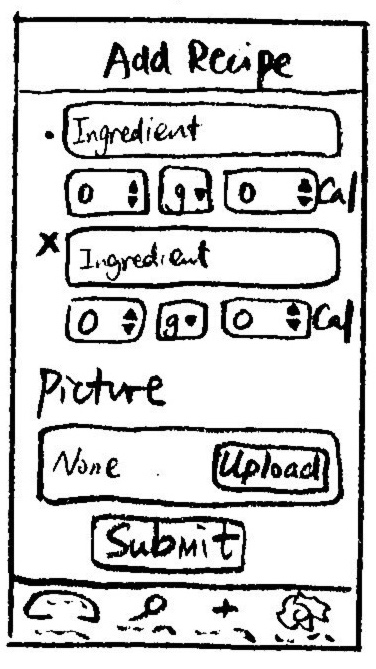 Add Recipe
Ingredient
0 g 0 Cal
x Ingredient
0 g 0 Cal
Picture
None Upload
Submit
+